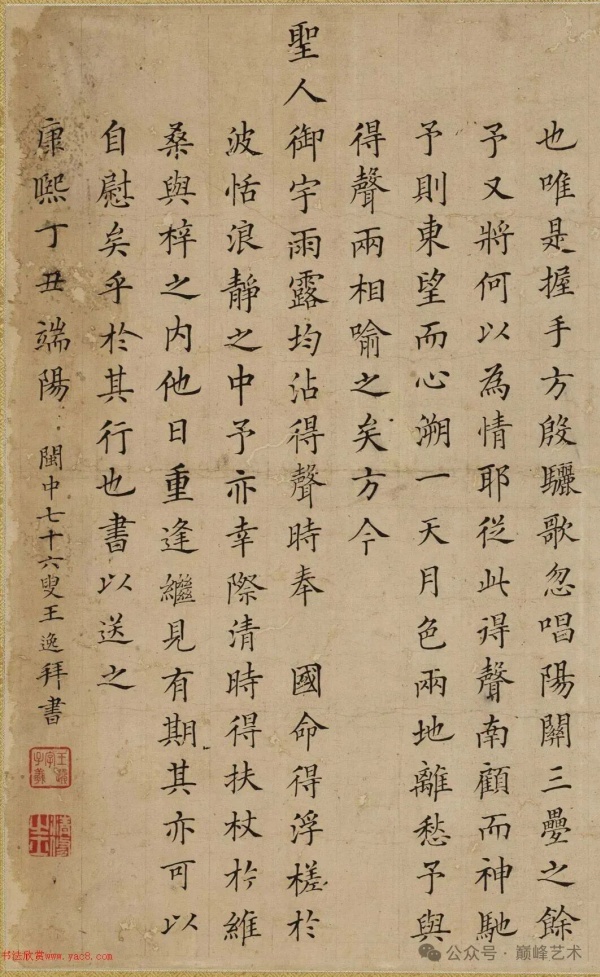 也唯是握手方殷驪歌忽唱陽關三疊之餘
予又將何以為情耶從此得聲南顧而神馳
予則東望而心溯一天月色兩地離愁予與
得聲兩相喻之矣方今
聖人御宇雨露均沾得聲時奉 國命得浮槎於
波恬浪靜之中予亦幸際清時得扶杖於維
桑與梓之内他日重逢繼見有期其亦可以
自慰矣乎於其行也書以送之
康熙丁丑端陽 閩中七十六叟王逸拜書
书法欣赏www.yac8.com
公众号·巅峰艺术